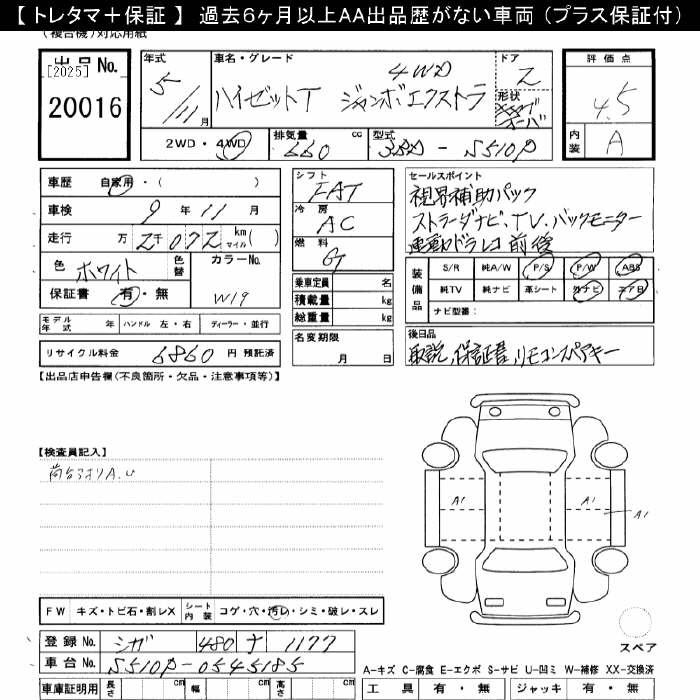 【 トレタマ＋保証 】 過去６ヶ月以上ＡＡ出品歴がない車両 (プラス保証付)
(複合機)対応用紙
出品 No.
[2025]
20016
年式
5/11月
車名・グレード
4WD
ハイゼットT ジャンボエクストラ
ドア
2
形状
評価点
4.5
内装
A
2WD・4WD
排気量 660 cc
型式 3BD - S510P
車歴 自家用・( )
車検 9年11月
走行 万 2千072 km マイル( )
色 ホワイト 色替
カラーNo. W19
保証書 有・無
シフト
FAT
冷房
AC
燃料
G
乗車定員 名
積載量 kg
総重量 kg
セールスポイント
視界補助パック
ストラーダナビ、TV、バックモニター
連動ドラレコ前後
装備品
S/R 純A/W P/S P/W ABS
純TV 純ナビ 革シート 外ナビ エアB
ナビ型番:
モデル年式 年 ハンドル 左・右 ディーラー・並行
リサイクル料金 6860 円 預託済
名変期限
月 日
後日品
取説、保証書、リモコンスペアキー
【出品店申告欄(不良箇所・欠品・注意事項等)】
【検査員記入】
荷台うすりA.U
A1
A1
A1
FW キズ・トビ石・割レX シート内装 コゲ・穴・汚レ・シミ・破レ・スレ
スペア
登録 No. シガ 480 ナ 1177
車台 No. S510P-0545185
車庫証明用 長さ cm 幅 cm 高さ cm
A-キズ C-腐食 E-エクボ S-サビ U-凹ミ W-補修 XX-交換済
工具 有・無 ジャッキ 有・無